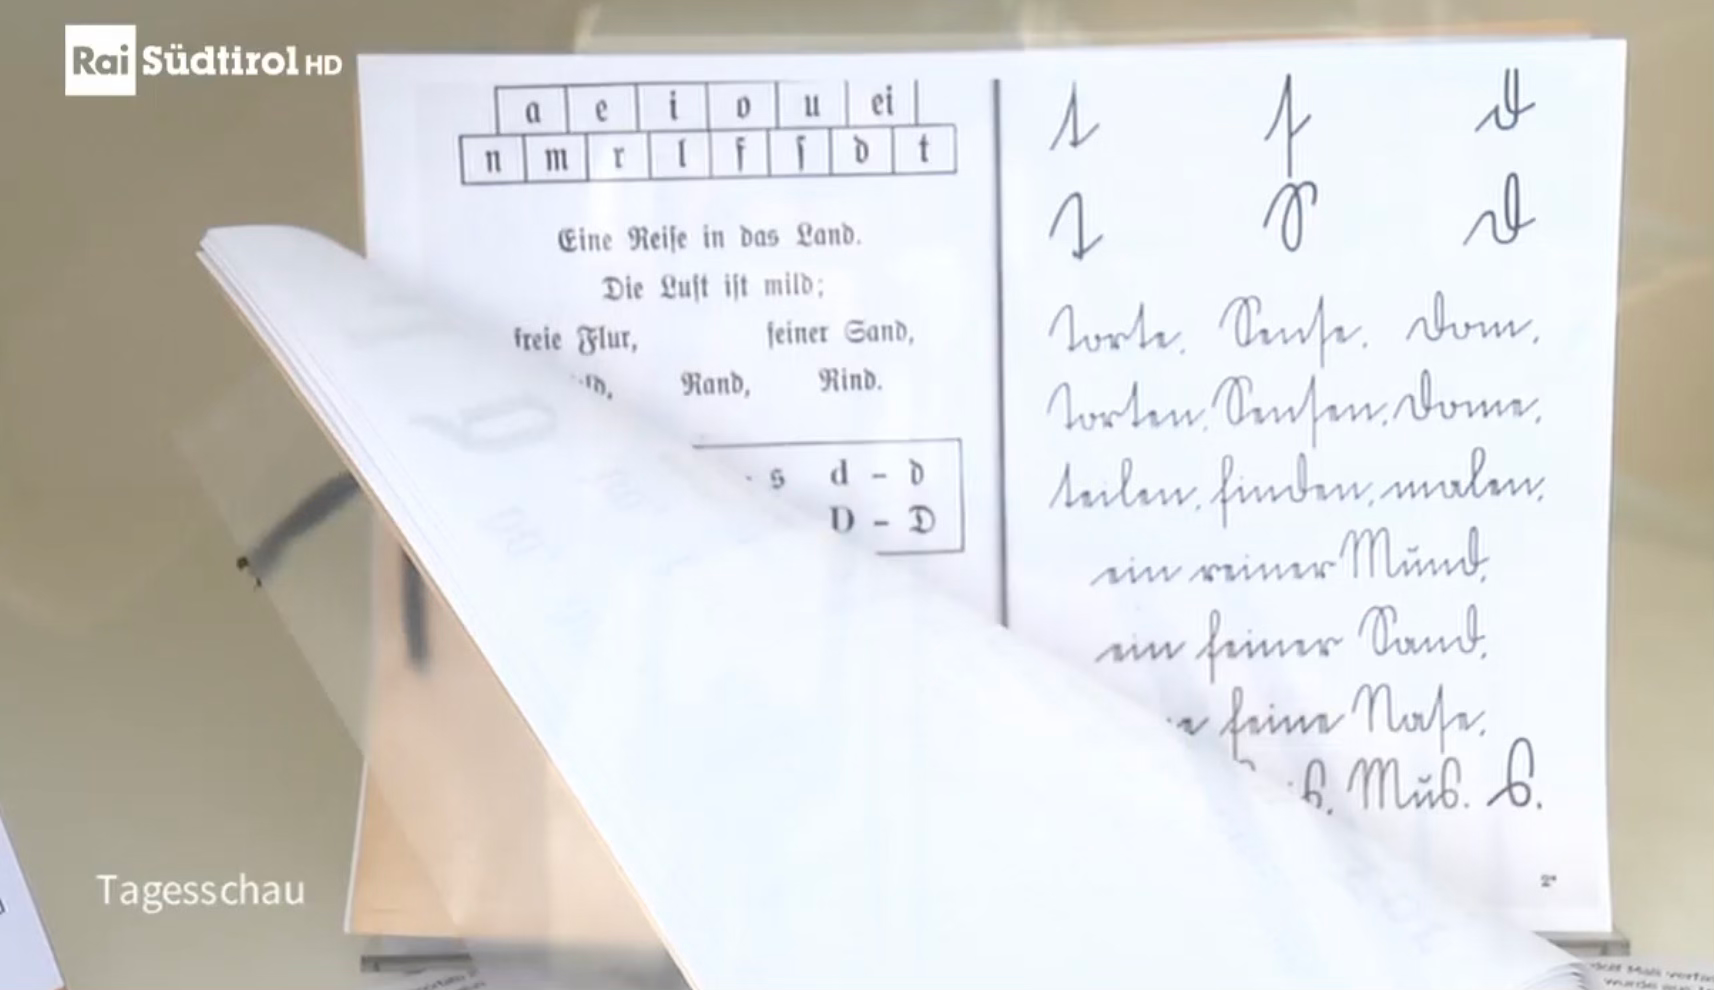 Rai Südtirol HD
a e i o u ei
n m r l f ſ d t
Eine Reiſe in das Land.
Die Luft iſt mild;
freie Flur, feiner Sand,
Rand, Rind.
s d - d
D - D
t ſ d
T S D
Torte. Senſe. Dom.
Torten. Senſen. Dome.
teilen. finden. malen.
ein reiner Mund.
ein feiner Sand.
feine Naſe.
ß. Muß. ß.
Tagesschau